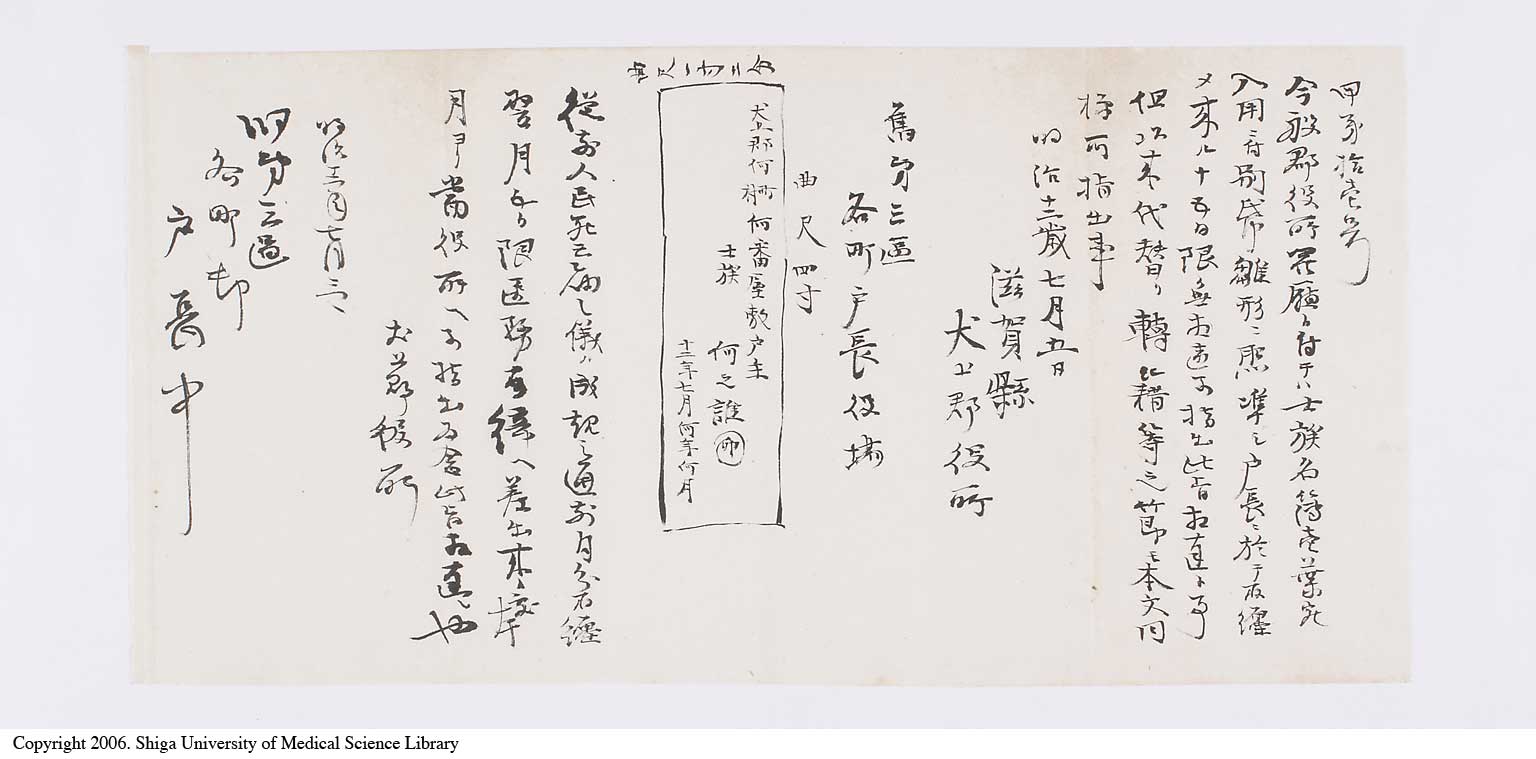 甲第拾壱号
今般郡役所罫願ニ付テハ士族名簿壱葉宛
入用ニ付別紙雛形ニ照準シ戸長ニ於テ取纏
メ来ル十五日限無相違可指出此旨相達候事
但以来代替リ轉籍等之節モ本文同
様可指出事
明治十二歳七月五日
滋賀縣
犬上郡役所
舊第三區
各町戸長役場
曲尺四寸
犬上郡何村町何番屋敷戸主
士族
何之誰 印
十二年七月何年何月
従前人民死亡届之儀ハ成規之通前月分取纏
翌月五日限医務取締ヘ差出来候処
月ヨリ當役所ヘ可指出為念此旨相達候也
明治十二年七月三日
犬上郡役所
旧第三區
各町村
戸長中
Copyright 2006. Shiga University of Medical Science Library